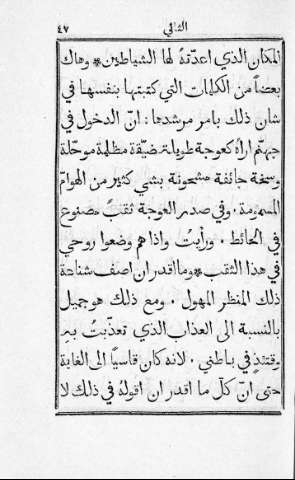 الثاني ٤٧
المكان الذي اعدّتهُ لها الشياطين * وهاك
بعضاً من الكلمات التي كتبتها بنفسها في
شان ذلك بامر مرشدها: انّ الدخول في
جهنّم اراهُ كعوجة طويلة ضيّقة مظلمة موحلة
وسخة جائفة مشحونة بشي كثير من الهوامّ
المسمومة. وفي صدر العوجة ثقبٌ مصنوع
في الحائط. ورأيتُ واذا هم وضعوا روحي
في هذا الثقب * وما اقدر ان اصف شناحة
ذلك المنظر المهول. ومع ذلك هو جميل
بالنسبة الى العذاب الذي تعذّبتُ بهِ
وقتئذٍ في باطني. لانهُ كان قاسياً الى الغاية
حتى انّ كلّ ما اقدر ان اقولهُ في ذلك لا